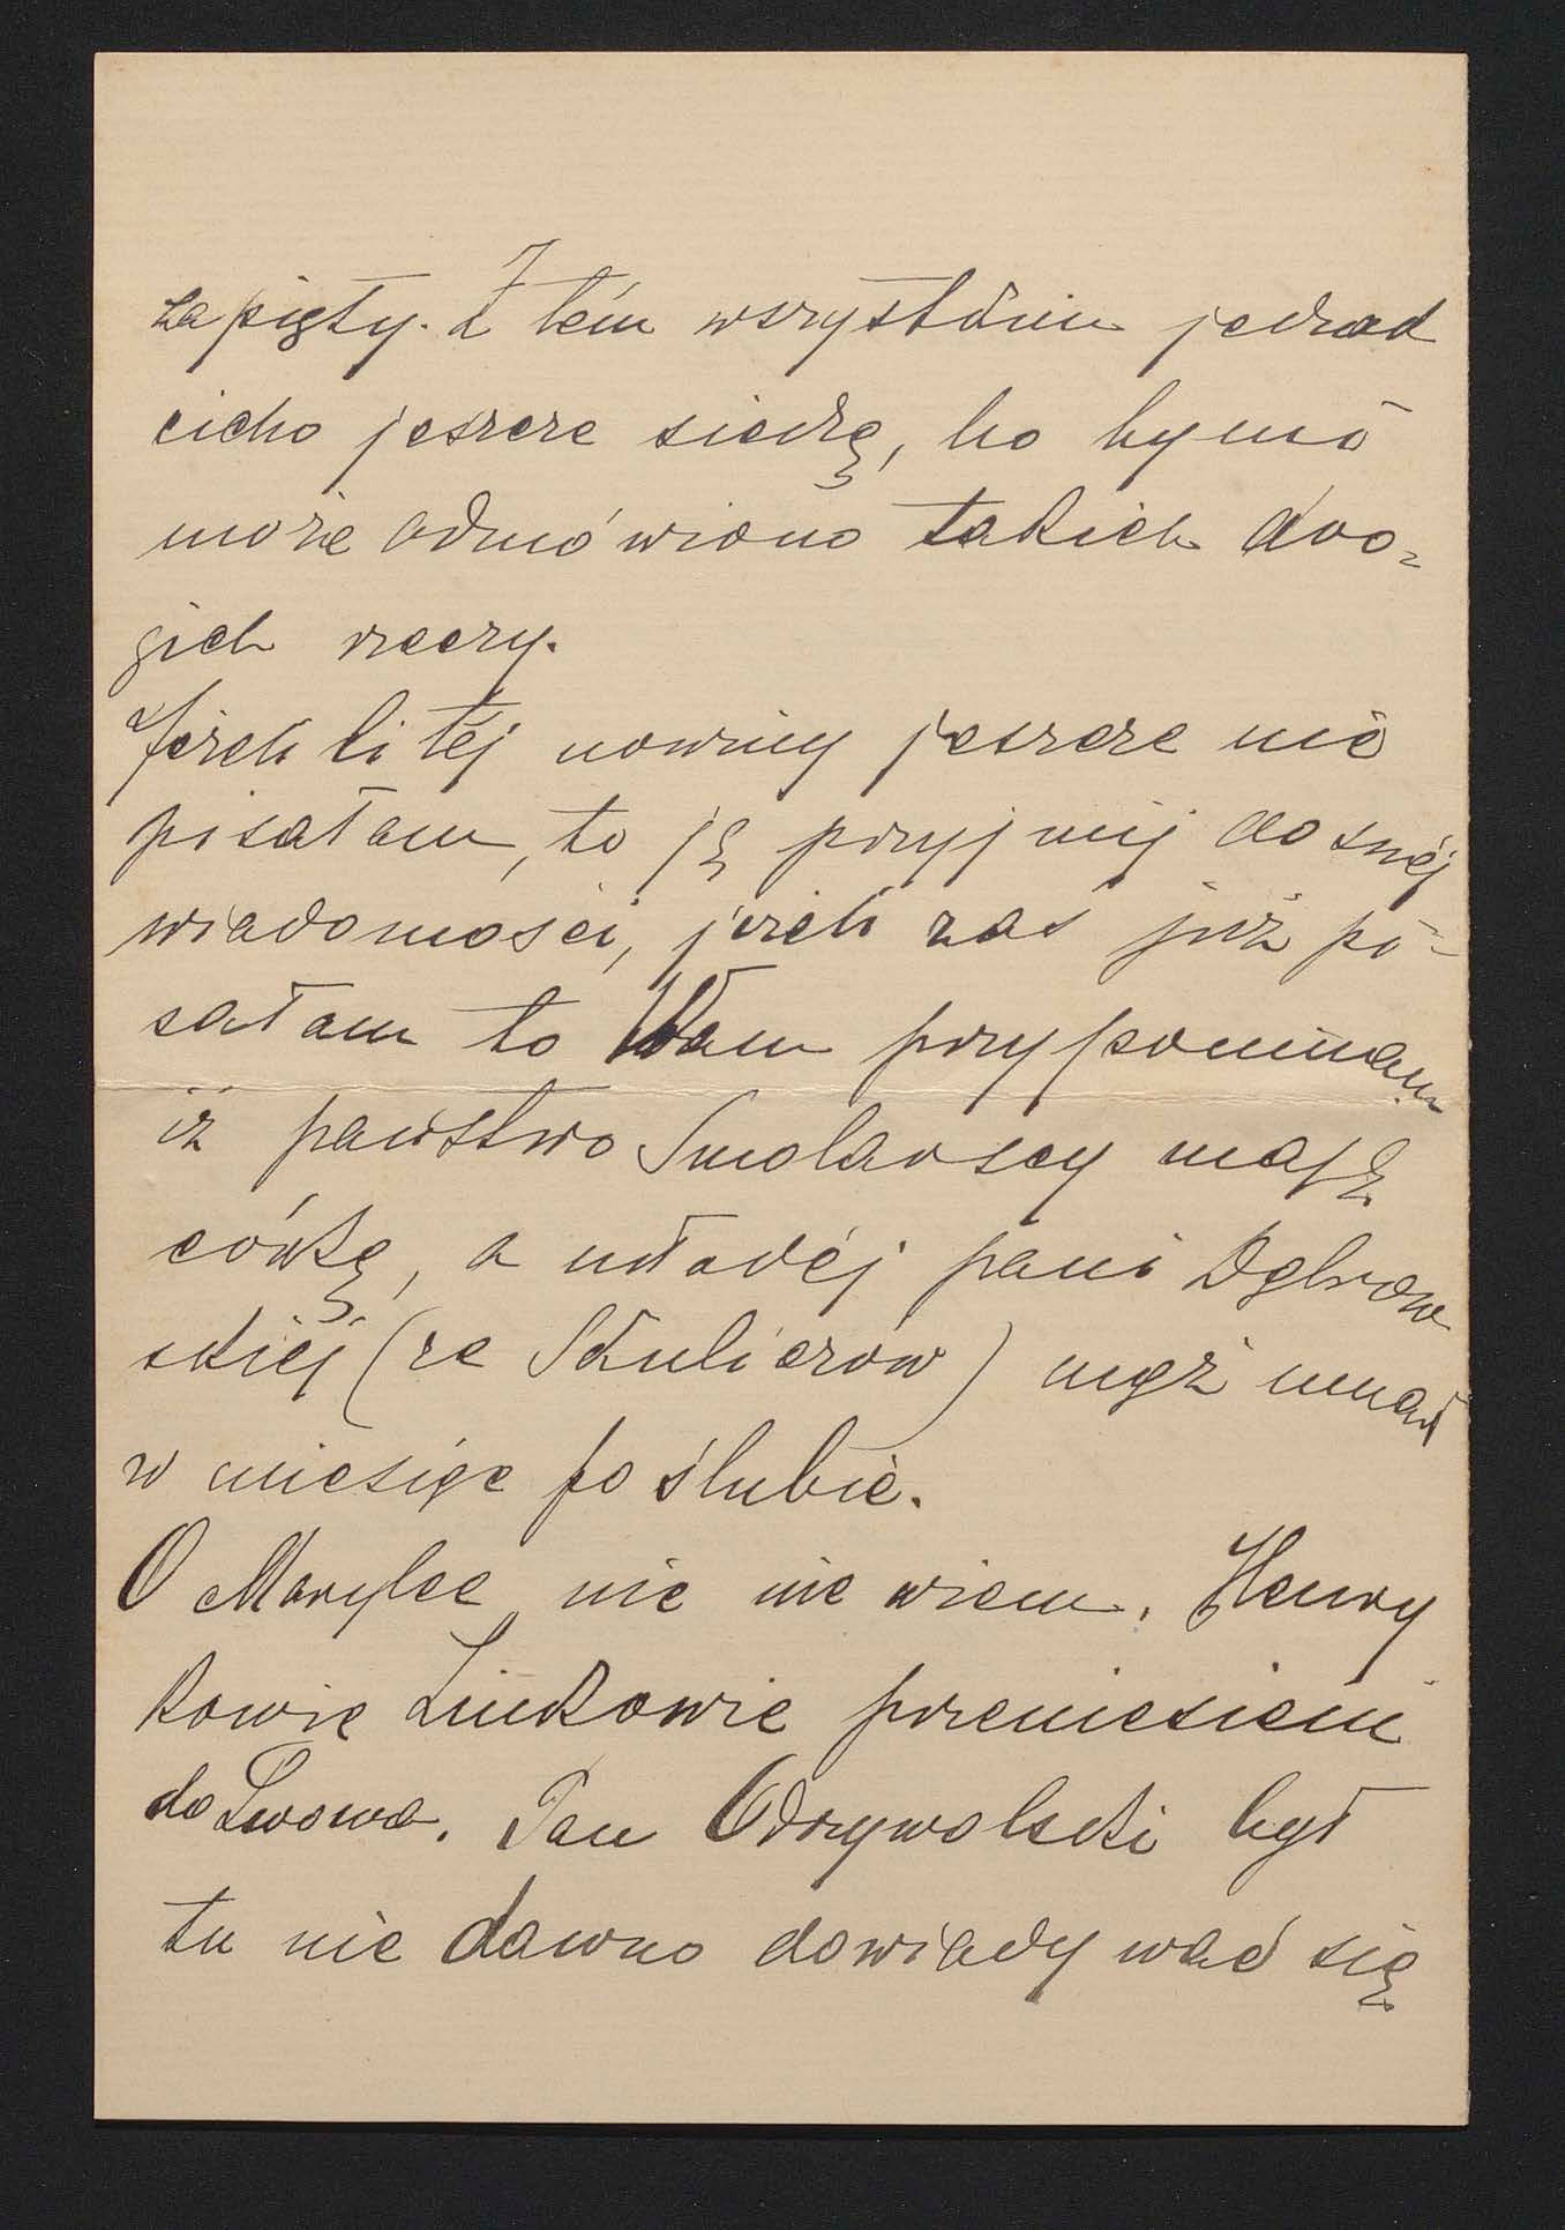 za pięty. Z tém wszystkiem jednak
cicho jeszcze siedzę, bo by mi
może odmówiono takich dro=
gich rzeczy.
Jeżeli Ci téj nowiny jeszcze nie
pisałam, to ją przyjmij do swéj
wiadomości, jeżeli zaś już pi=
sałam to Wam przypominam
iż państwo Smolarscy mają
córkę, a młodéj pani Dąbrow
skiéj (ze Szulierów) mąż umarł
w miesiąc po ślubie.
O Marylce nic nie wiem. Henry
kowie Linkowie przeniesieni
do Lwowa. Pan Odrzywolski był
tu nie dawno dowiady wać się